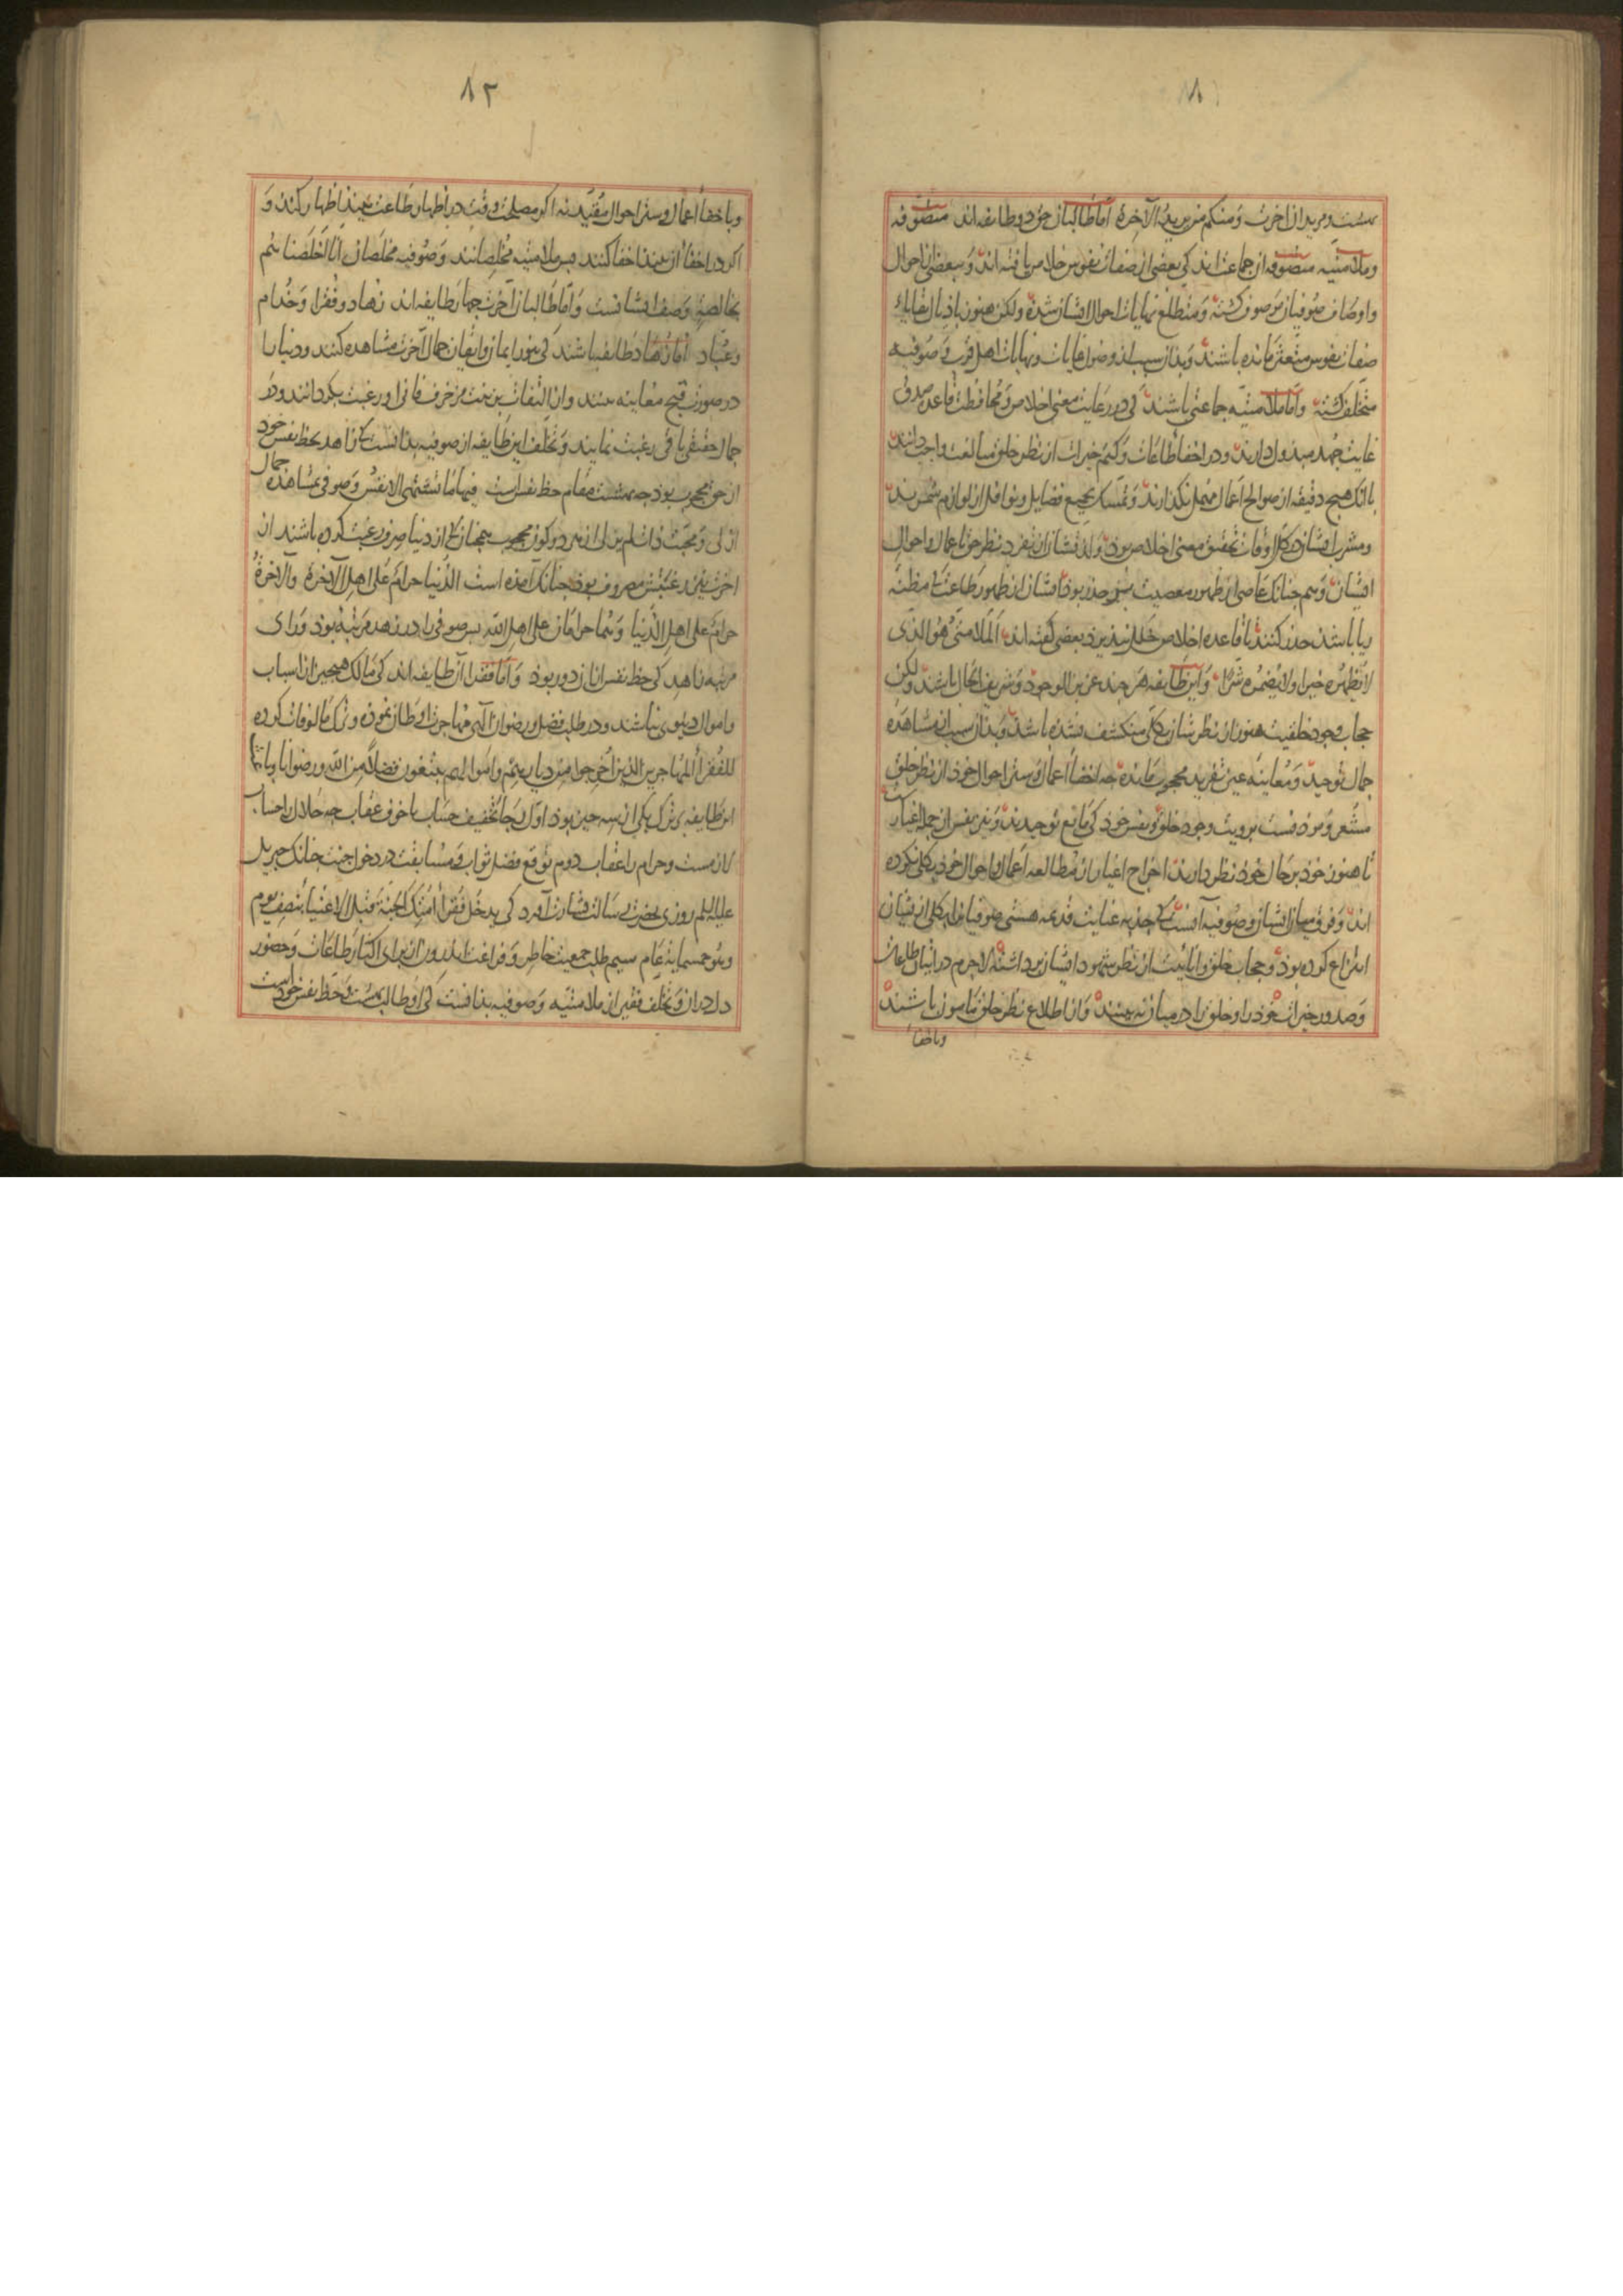 ٨١
بهشت و مرید ان اخرت وَمنکم من یریدُ الآخرة امّا طالبان حق دو طایفه اند متصوّفه
و ملامتیه متصوّفه ان جماعت اند کی بعضی از صفات نفوس خلاص یافته اند وَ ببعضی از احوال
و اوصاف صوفیان موصوف کشته وَ متطلع نهایات احوال ایشان شده ولکن هنوز باذیال بقایاء
صفات نفوس متعثر مانده باشند وَ بذان سبب از وصول غایات و نهایات اهل قرب وَ صوفیه
متخلّف کشته وامّا ملامتیّه جماعتی باشند کی در رعایت معنی اخلاص و محافظت قاعده صدق
غایت جهد مبذول دارند و در اخفا طاعات وَ کتم خیرات از نظر خلق مبالغت واجب دانند
با انک هیچ دقیقه از صوالح اعمال مهمل نکذارند وَ تمسک بجمیع فضایل و نوافل از لوازم شمرند
و مشرب ایشان در کل اوقات تحقیق معنی اخلاص بوذ و لذتشان در تفرد نظر حق باعمال و احوال
ایشان وَ همچنانک عاصی از ظهور معصیت بر حذر بوذ ایشان از ظهور طاعت کی مظنّه
ریا باشذ حذر کنند تا قاعده اخلاص خلل نپذیرد بعضی کفته اند اَلمَلامتیُّ هُوَ الذی
لا یُظهرُ خیرا ولا یُضمرُ شرّا وَ این طایفه هر چند عزیز الوجود وَ شریف الحال باشند ولکن
حجاب وجود خلقیت هنوز از نظرشان بکلّی منکشف نشده باشذ وَ بذان سبب از مشاهده
جمال توحید وَ معاینه عین تفرید محجوب مانده جه اخفاء اعمال وَ ستر احوال خوذ از نظر خلق
مشعر و موذنست برویت وجود خلق و نفس خوذ کی مانع توحیدند وَ نیز نفس از جمله اغیارست
تا هنوز خوذ بر حال خوذ نظر دارند اخراج اغیار از مطالعه اعمال و احوال خوذ بکلّی نکرده
اند وَ فرق میان ایشان وصوفیه آنست کی جذبه عنایت قدیمه هستی صوفیانرا بکلی از ایشان
انتزاع کرده بوذ وَ حجاب خلق و انائیت از نظر شهود ایشان برداشته لاجرم در اتیان طاعات
وَ صدور خیرات خوذ را و خلق را در میان نه بینند وَ از اطلاع نظر خلق مامون باشند
و باخفا
٨٢
و باخفاء اعمال و ستر احوال مقیّد نه اکر مصلحت وقت در اظهار طاعت بینند اظهار کنند وَ
اکر در اخفاء آن بینند اخفا کنند پس ملامتیه مخلِصانند وَ صوفیه مخلَصان انّا اخلَصناهُم
بخالصةٍ وَصف ایشانست وَ امّا طالبان آخرت چهار طایفه اند زهاد و فقرا وَ خُدام
و عُبّاد امّا زهاد طایفه باشند کی بنور ایمان و ایقان جمال آخرت مشاهده کنند و دنیا را
در صورت قبح معاینه بینند و از التفات بزینت مزخرف فانی او رغبت بکردانند و در
جمال حقیقی باقی رغبت نمایند وَ تخلف این طایفه از صوفیه بذانست کی زاهد بحظ نفس خود
از حق محجوب بوذ جه بهشت مقام حظ نفس است فیها ما تشتهی الانفُس وَ صوفی بمشاهده جمال
ازلی وَ محبّت ذات لم یزلی از هر دو کون محجوب همچنانک از دنیا صرف رغبت کرده باشند از
اخرت نیز رغبتش مصروف بوذ جنانک آمده است الدُّنیا حرامٌ عَلی اهل الآخرةِ والآخرةُ
حرامٌ علی اهل الدُّنیا وَ هُما حرامانِ علی اهل الله پس صوفی را در زهد مرتبه بوذ وَرای
مرتبه زاهد کی حظ نفس ازان دور بوذ وَ امّا فقرا آن طایفه اند کی مالک هیچ چیز از اسباب
و اموال دنیوی نباشند و در طلب فضل و رضوان الهی مهاجرت اوطان نموذه و ترک مالوفات کرده
للفُقراءِ المُهاجرین الذین اُخرجوا من دیارهم وَ اموالهم یبتغون فضلاً من الله ورضوانا و باعث
این طایفه بر ترک یکی از سه چیز بوذ اوّل رجاء تخفیف حساب یا خوف عقاب جه حلال را حساب
لازمست و حرام را عقاب دوم توقع فضل ثواب وَ مسابقت در دخول جنت جنانک جبریل
علیه السلم روزی بحضرت رسالت بشارت آورد کی یدخل فقراءُ اُمّتک الجنّةَ قبل الاغنیاء بنصف یوم
وهو خمسمایة عام سیم طلب جمعیت خاطر وَ فراغت اندرون از برای اکثار طاعات وَ حضور
دل دران وَ تخلّف فقیر از ملامتیّه وَ صوفیه بذانست کی او طالب بهشت وَ حظ نفس خود است